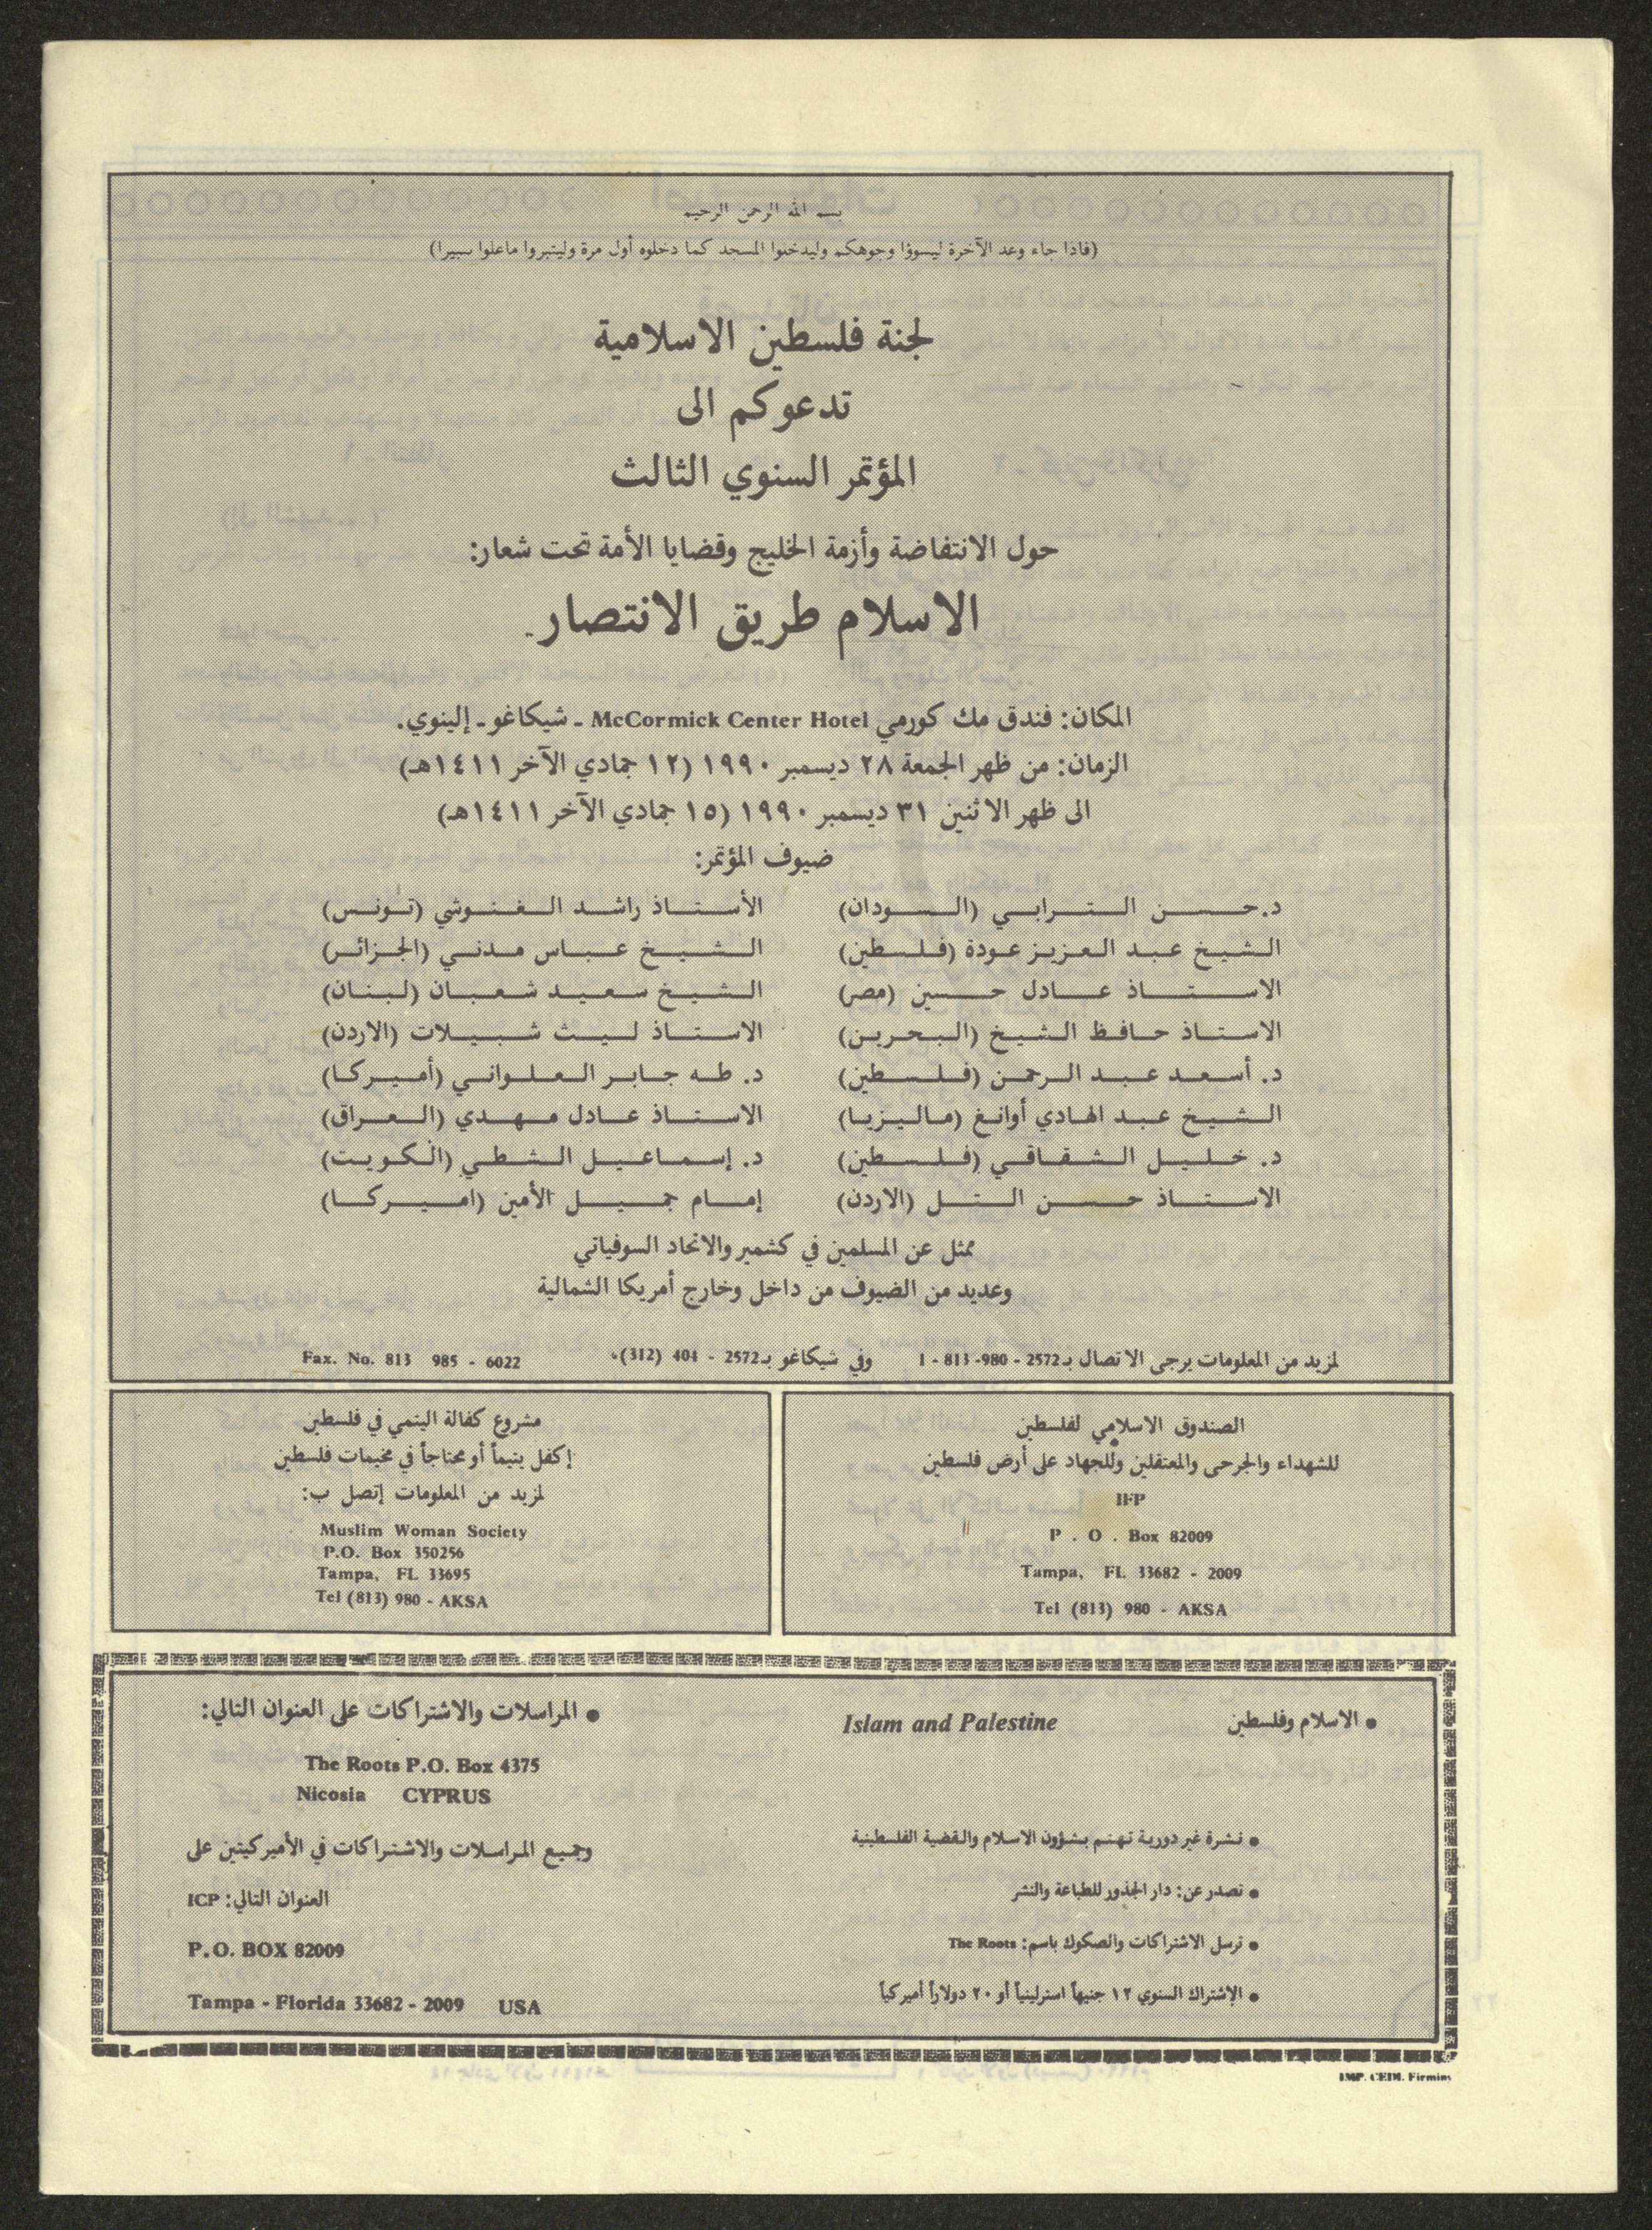 بسم الله الرحمن الرحيم
(فاذا جاء وعد الآخرة ليسوؤا وجوهكم وليدخلوا المسجد كما دخلوه أول مرة وليتبروا ماعلوا تتبيرا)
لجنة فلسطين الاسلامية
تدعوكم الى
المؤتمر السنوي الثالث
حول الانتفاضة وأزمة الخليج وقضايا الأمة تحت شعار:
الاسلام طريق الانتصار.
المكان: فندق مك كورمي McCormick Center Hotel ـ شيكاغو ـ إلينوي.
الزمان: من ظهر الجمعة ٢٨ ديسمبر ١٩٩٠ (١٢ جمادي الآخر ١٤١١هـ)
الى ظهر الاثنين ٣١ ديسمبر ١٩٩٠ (١٥ جمادي الآخر ١٤١١هـ)
ضيوف المؤتمر:
د.حسن الترابي (السودان) الأستاذ راشد الغنوشي (تونس)
الشيخ عبد العزيز عودة (فلسطين) الشيخ عباس مدني (الجزائر)
الاستاذ عادل حسين (مصر) الشيخ سعيد شعبان (لبنان)
الاستاذ حافظ الشيخ (البحرين) الاستاذ ليث شبيلات (الاردن)
د. أسعد عبد الرحمن (فلسطين) د. طه جابر العلواني (أميركا)
الشيخ عبد الهادي أوانغ (ماليزيا) الاستاذ عادل مهدي (العراق)
د. خليل الشقاقي (فلسطين) د. إسماعيل الشطي (الكويت)
الاستاذ حسن التل (الاردن) إمام جميل الأمين (اميركا)
ممثل عن المسلمين في كشمير والاتحاد السوفياتي
وعديد من الضيوف من داخل وخارج أمريكا الشمالية
لمزيد من المعلومات يرجى الاتصال بـ 2572 - 980- 813 - 1 وفي شيكاغو بـ 2572 - 404 (312) Fax. No. 813 985 - 6022
الصندوق الاسلامي لفلسطين
للشهداء والجرحى والمعتقلين وللجهاد على أرض فلسطين
IFP
P . O . Box 82009
Tampa, FL 33682 - 2009
Tel (813) 980 - AKSA
مشروع كفالة اليتمي في فلسطين
إكفل يتيماً أو محتاجاً في مخيمات فلسطين
لمزيد من المعلومات إتصل ب:
Muslim Woman Society
P.O. Box 350256
Tampa, FL 33695
Tel (813) 980 - AKSA
• الاسلام وفلسطين Islam and Palestine
• نشرة غير دورية تهتم بشؤون الاسلام والقضية الفلسطينية
• تصدر عن: دار الجذور للطباعة والنشر
• ترسل الاشتراكات والصكوك باسم: The Roots
• الإشتراك السنوي ١٢ جنيهاً استرلينياً أو ٢٠ دولاراً أميركياً
• المراسلات والاشتراكات على العنوان التالي:
The Roots P.O. Box 4375
Nicosia CYPRUS
وجميع المراسلات والاشتراكات في الأميركيتين على
العنوان التالي: ICP
P.O. BOX 82009
Tampa - Florida 33682 - 2009 USA
IMP. CEDI. Firminy